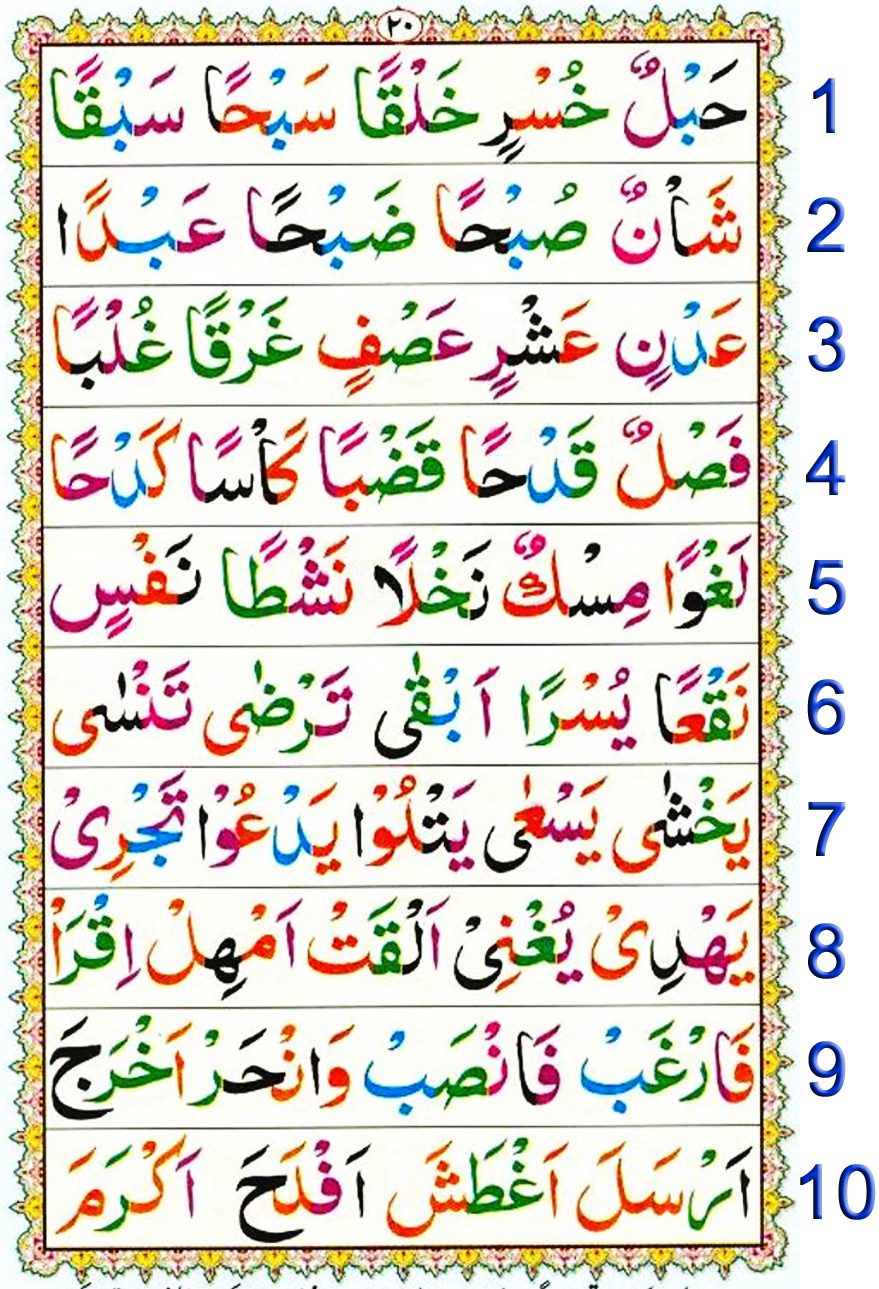 ٢٠
حَبْلٌ خُسْرٍ خَلْقًا سَبْحًا سَبْقًا 1
شَاْنٌ صُبْحًا ضَبْحًا عَبْدًا 2
عَدْنٍ عَشْرٍ عَصْفٍ غَرْقًا غُلْبًا 3
فَصْلٌ قَدْحًا قَضْبًا كَاْسًا كَدْحًا 4
لَغْوًا مِسْكٌ نَخْلًا نَشْطًا نَفْسٍ 5
نَقْعًا يُسْرًا اَبْقٰى تَرْضٰى تَنْسٰى 6
يَخْشٰى يَسْعٰى يَتْلُوْا يَدْعُوْا تَجْرِىْ 7
يَهْدِىْ يُغْنِىْ اَلْقَتْ اَمْهِلْ اِقْرَاْ 8
فَارْغَبْ فَانْصَبْ وَانْحَرْ اَخْرَجَ 9
اَرْسَلَ اَغْطَشَ اَفْلَحَ اَكْرَمَ 10